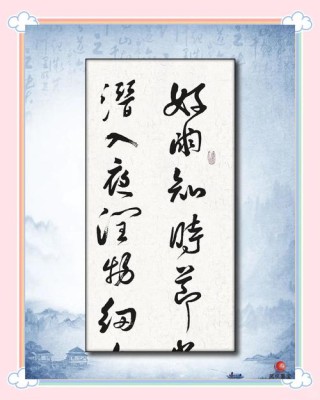 好雨知時節
潛入夜潤物細